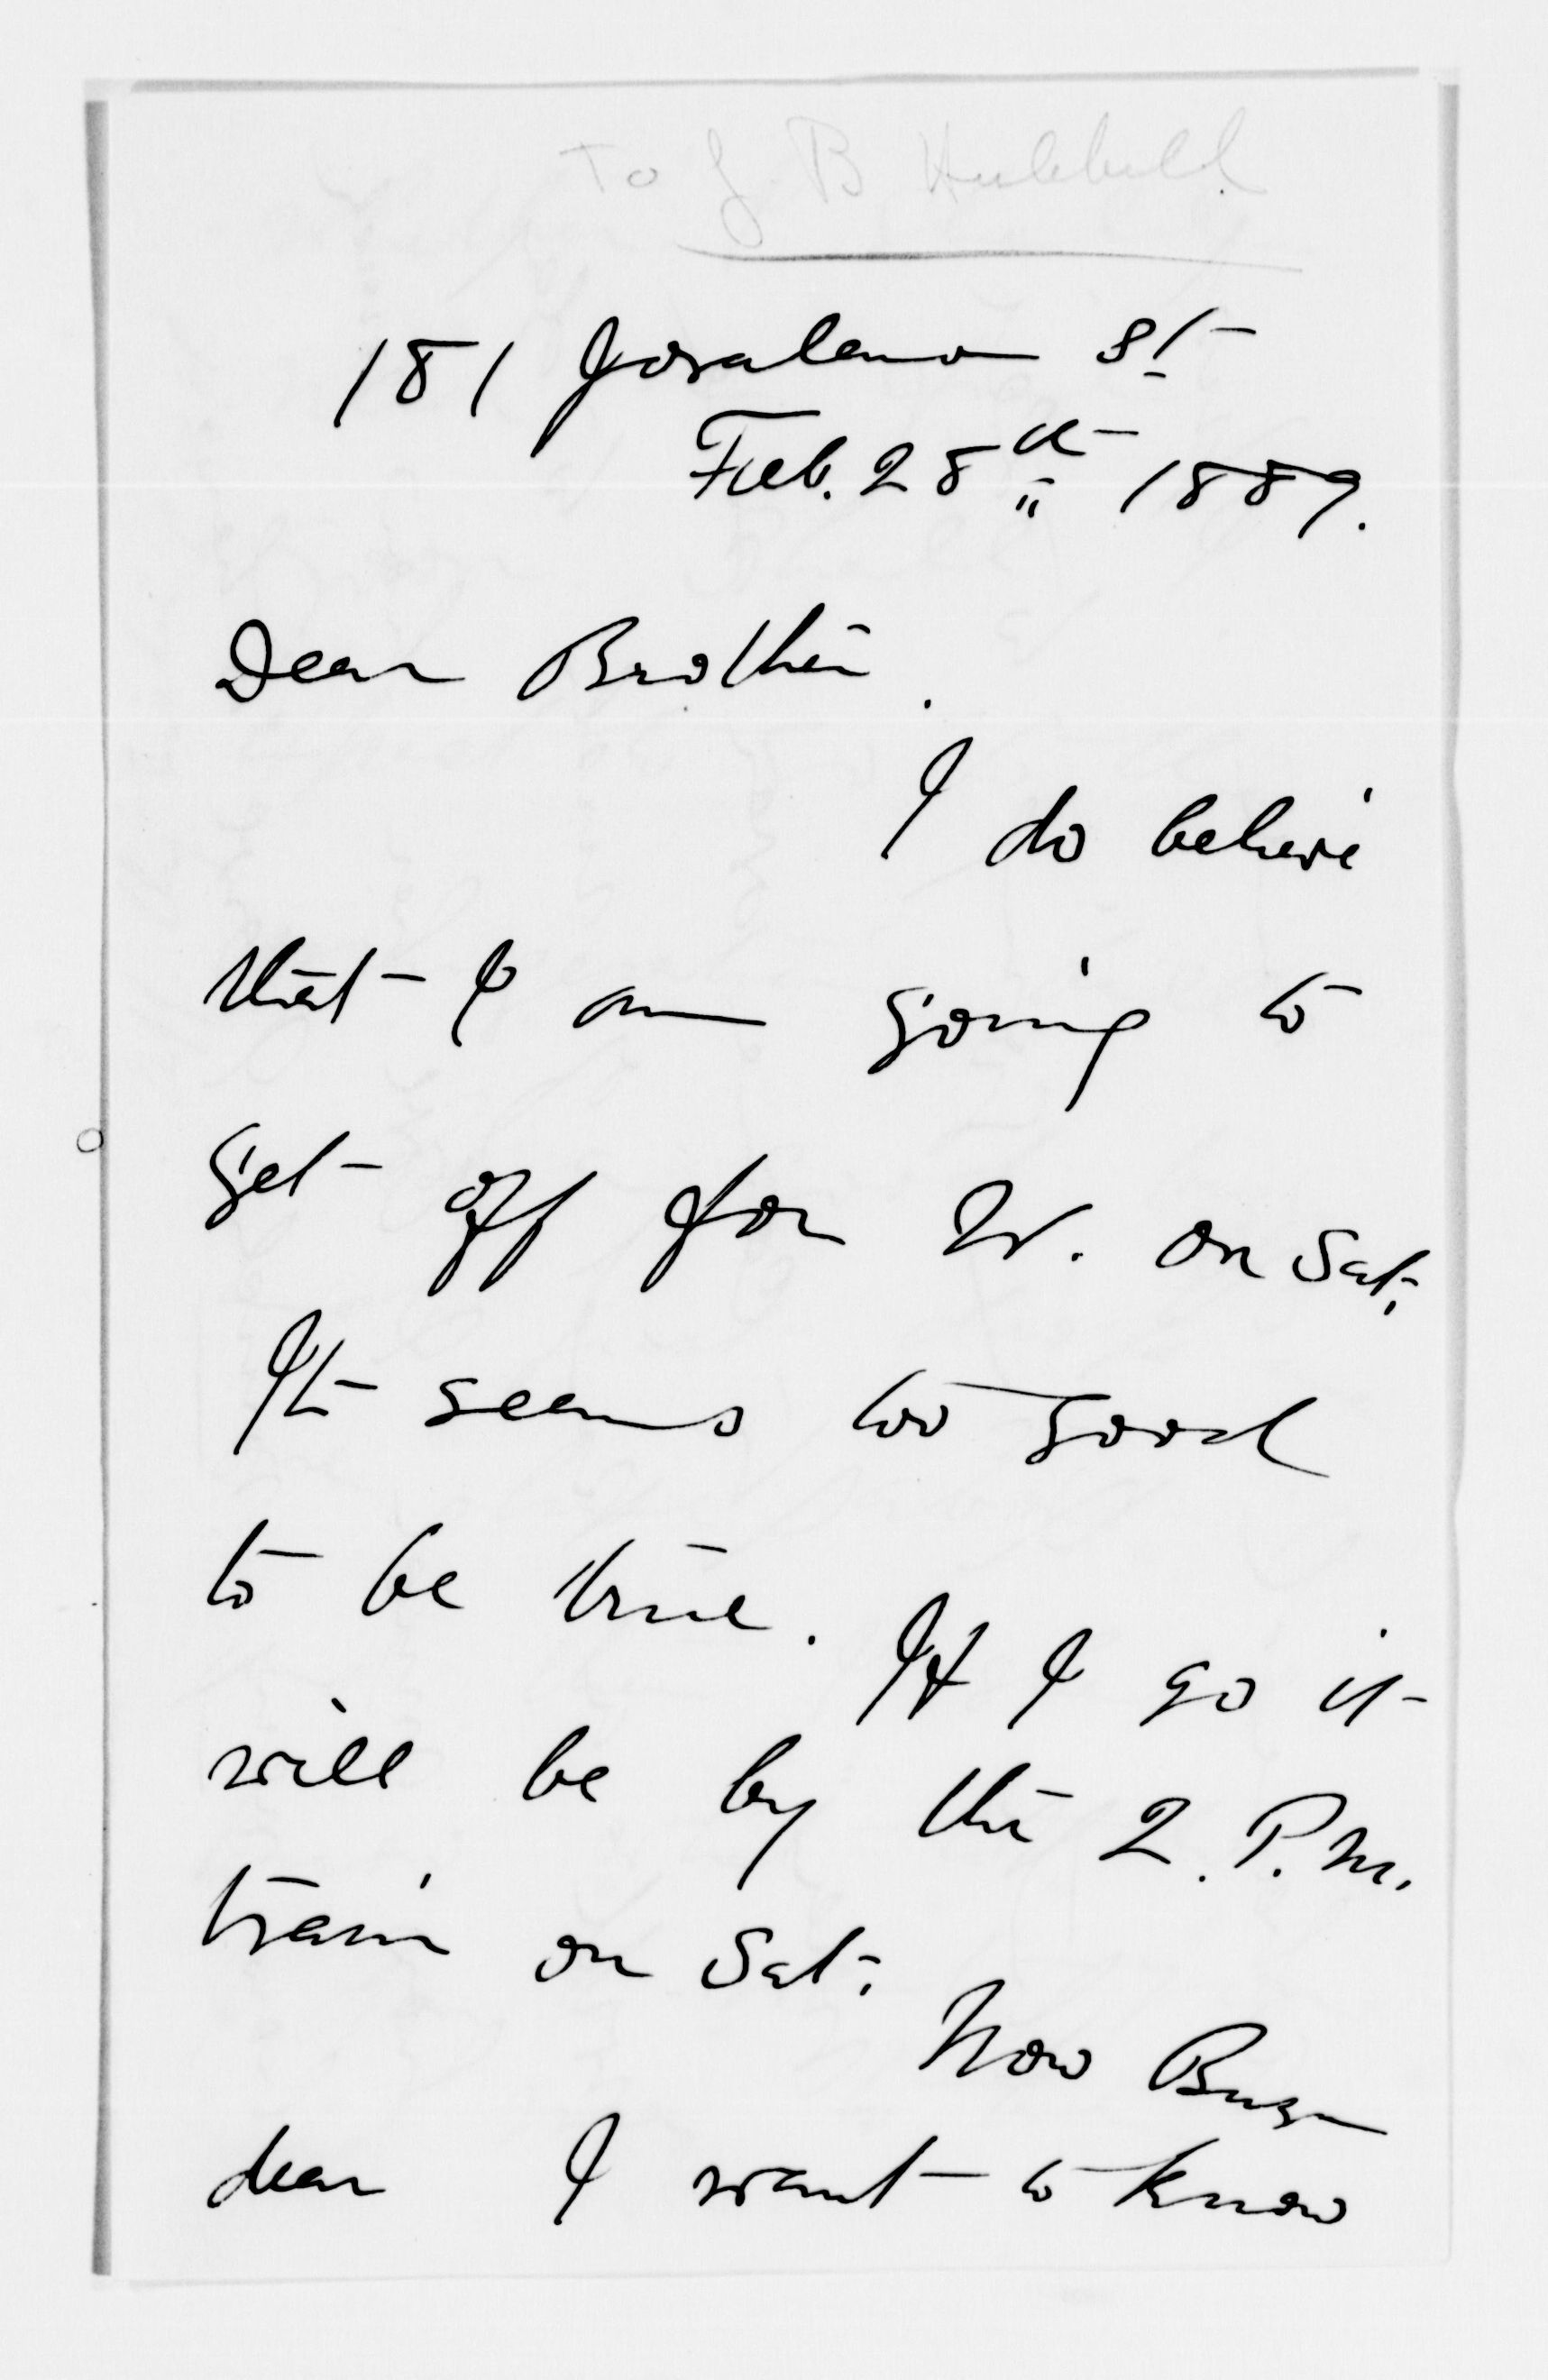 To J B Hubbell
181 Joralemon St
Feb. 28th 1889.
Dear Brother.
I do believe
that I am going to
get off for W. on Sat.
It seems too good
to be true. If I go it
will be by the 2. P.M.
train on Sat.
Now
dear I want to know